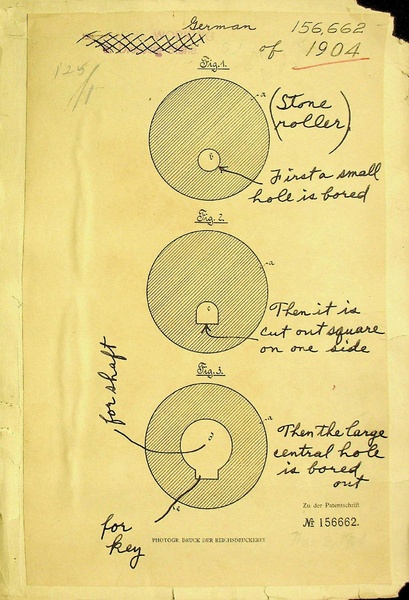 German 156,662
of 1904
125/1
Fig. 1.
a
(Stone
roller)
b
First a small
hole is bored
Fig. 2.
a
c
Then it is
cut out square
on one side
Fig. 3.
for shaft
a
Then the large
central hole
is bored
out
for
key
Zu der Patentschrift
№ 156662.
PHOTOGR. DRUCK DER REICHSDRUCKEREI